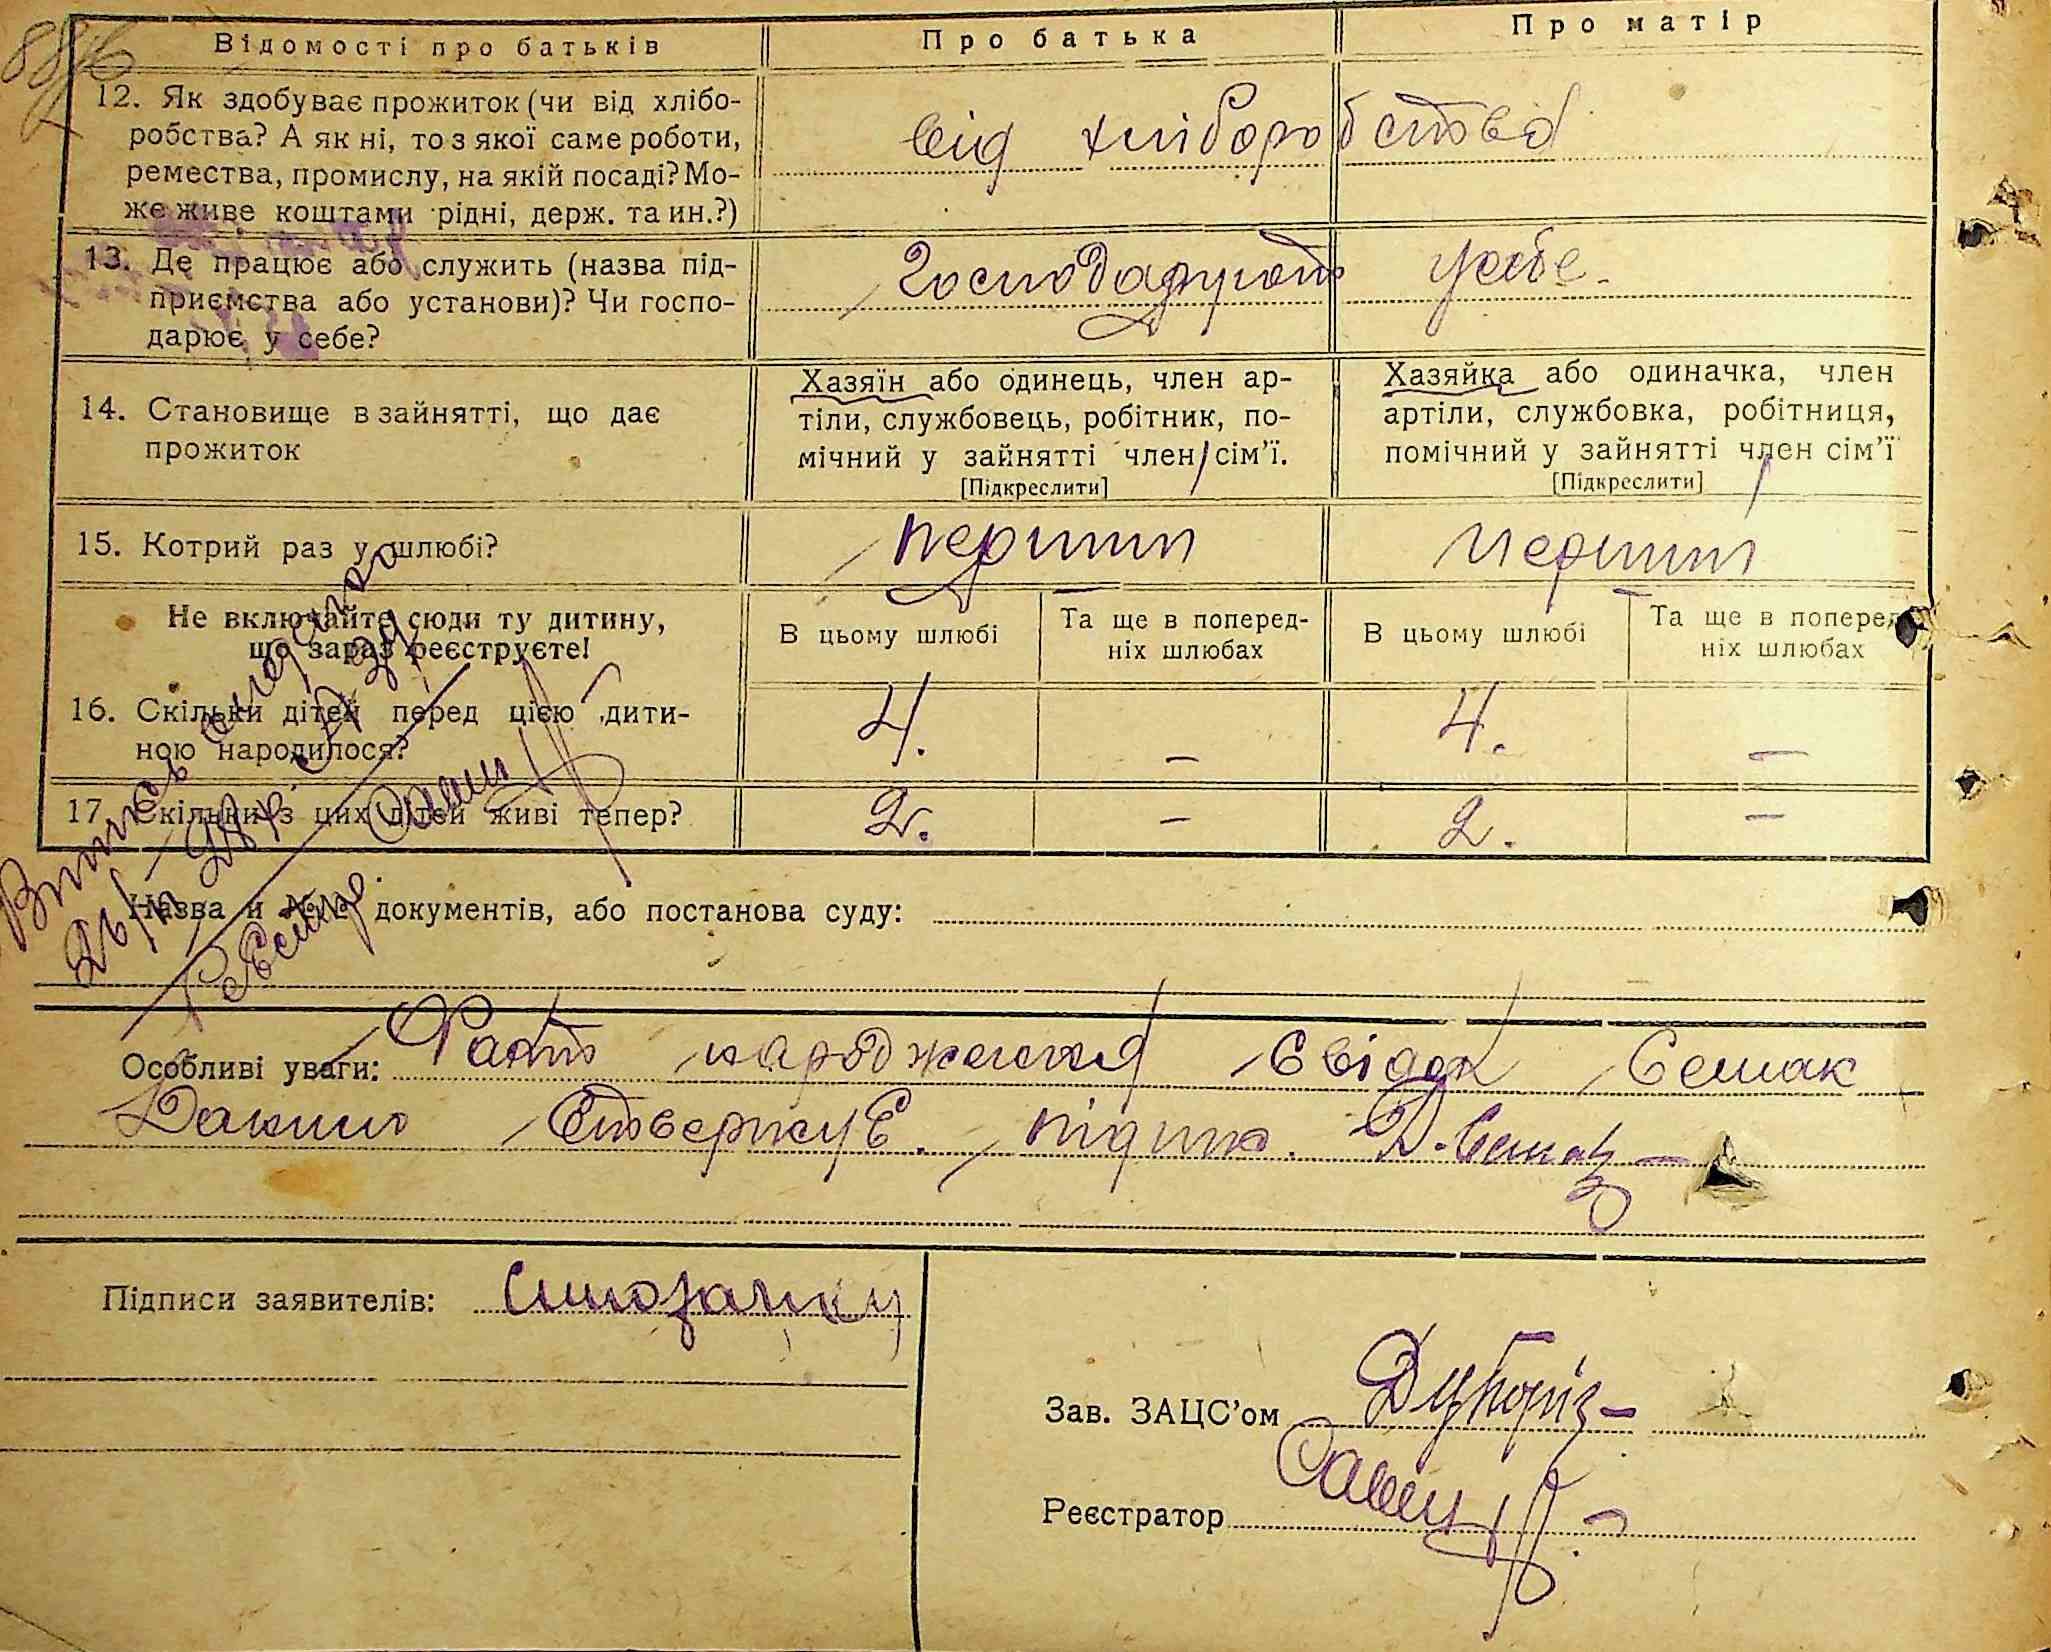 88/16
Відомості про батьків
Про батька
Про матір
12. Як здобуває прожиток (чи від хлібо-
робства? А як ні, то з якої саме роботи,
ремества, промислу, на якій посаді? Мо-
же живе коштами рідні, держ. та ин.?)
від хліборобства
13. Де працює або служить (назва під-
приємства або установи)? Чи госпо-
дарює у себе?
Господарують у себе
14. Становище в зайнятті, що дає
прожиток
Хазяїн або одинець, член ар-
тіли, службовець, робітник, по-
мічний у зайнятті член сім'ї.
[Підкреслити]
Хазяйка або одиначка, член
артіли, службовка, робітниця,
помічний у зайнятті член сім'ї
[Підкреслити]
15. Котрий раз у шлюбі?
перший
перший
Не включайте сюди ту дитину,
що зараз реєструєте!
В цьому шлюбі
Та ще в поперед-
ніх шлюбах
В цьому шлюбі
Та ще в поперед
ніх шлюбах
16. Скільки дітей перед цією дити-
ною народилося?
4. – 4. –
17. Скільки з цих дітей живі тепер?
2. – 2. –
Випись
Реєстр.
Назва й №№ документів, або постанова суду:
Особливі уваги: Факт народження свідок Семак
Данило ствержує. підпис. Д. Семак
Підписи заявителів:
Зав. ЗАЦС'ом
Реєстратор